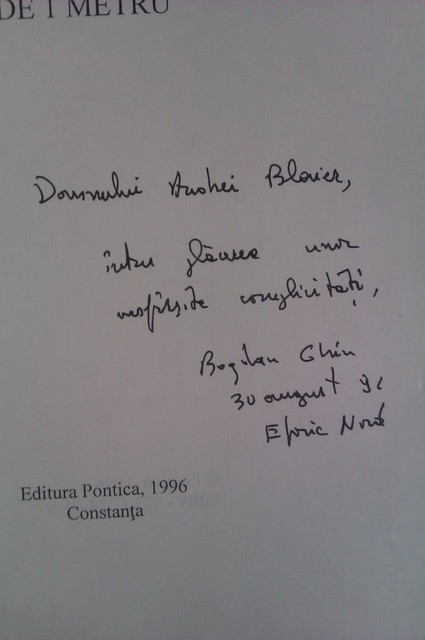 DE 1 METRU
Domnului Andrei Blaier,
întru
nesfîrșite complicități,
Bogdan Ghiu
30 august 96
Eforie Nord
Editura Pontica, 1996
Constanța